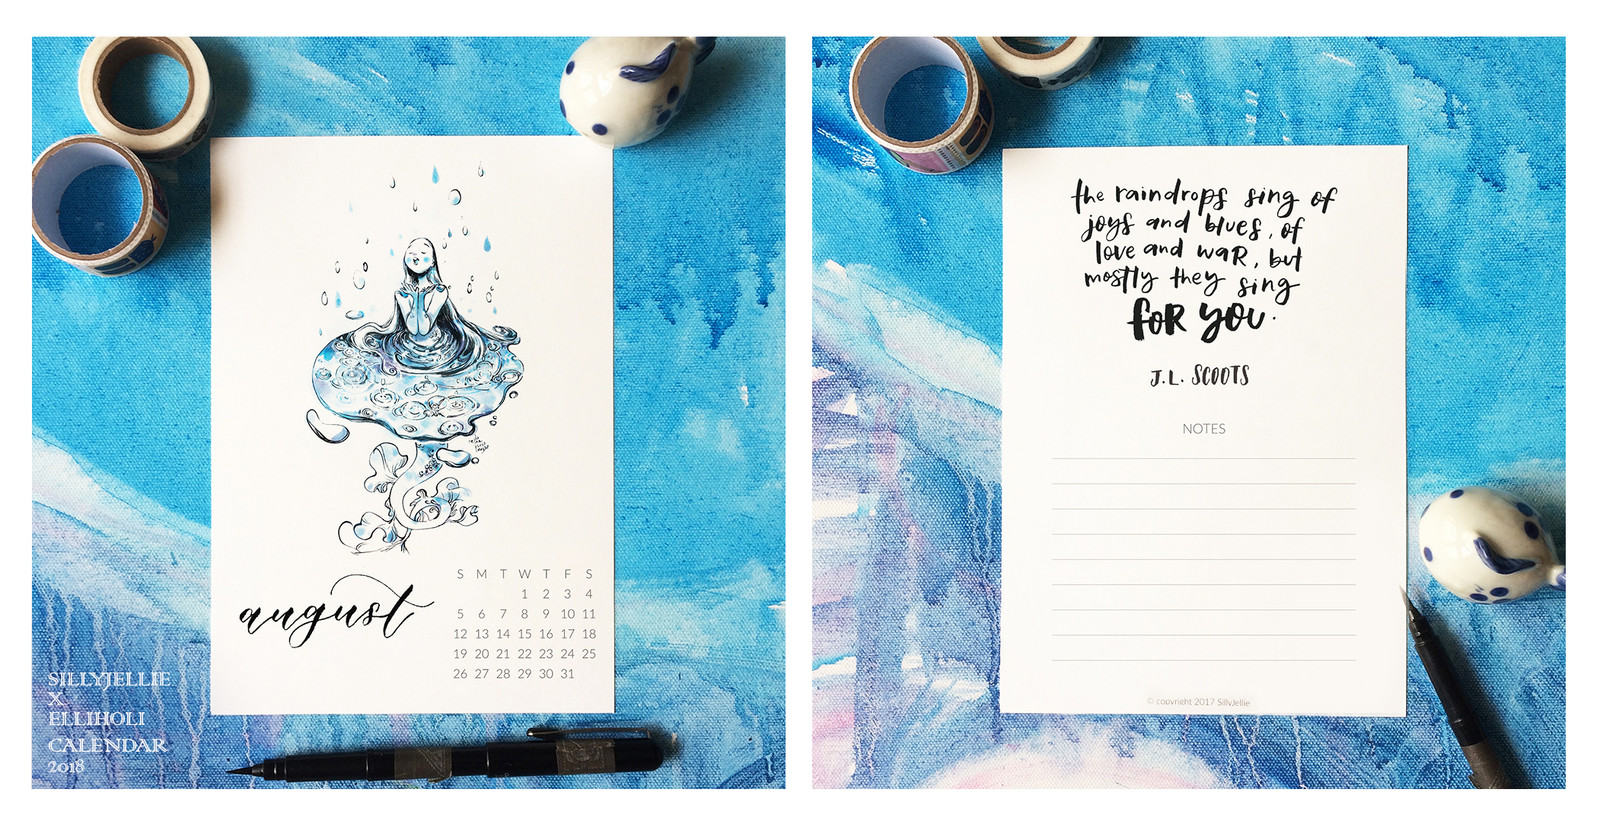 august
S M T W T F S
1 2 3 4
5 6 7 8 9 10 11
12 13 14 15 16 17 18
19 20 21 22 23 24 25
26 27 28 29 30 31
SILLYJELLIE
X
ELLIHOLI
CALENDAR
2018
the raindrops sing of
joys and blues, of
love and waR, but
mostly they sing
foR you.
J.L. SCOOTS
NOTES
© copyright 2017 SillyJellie